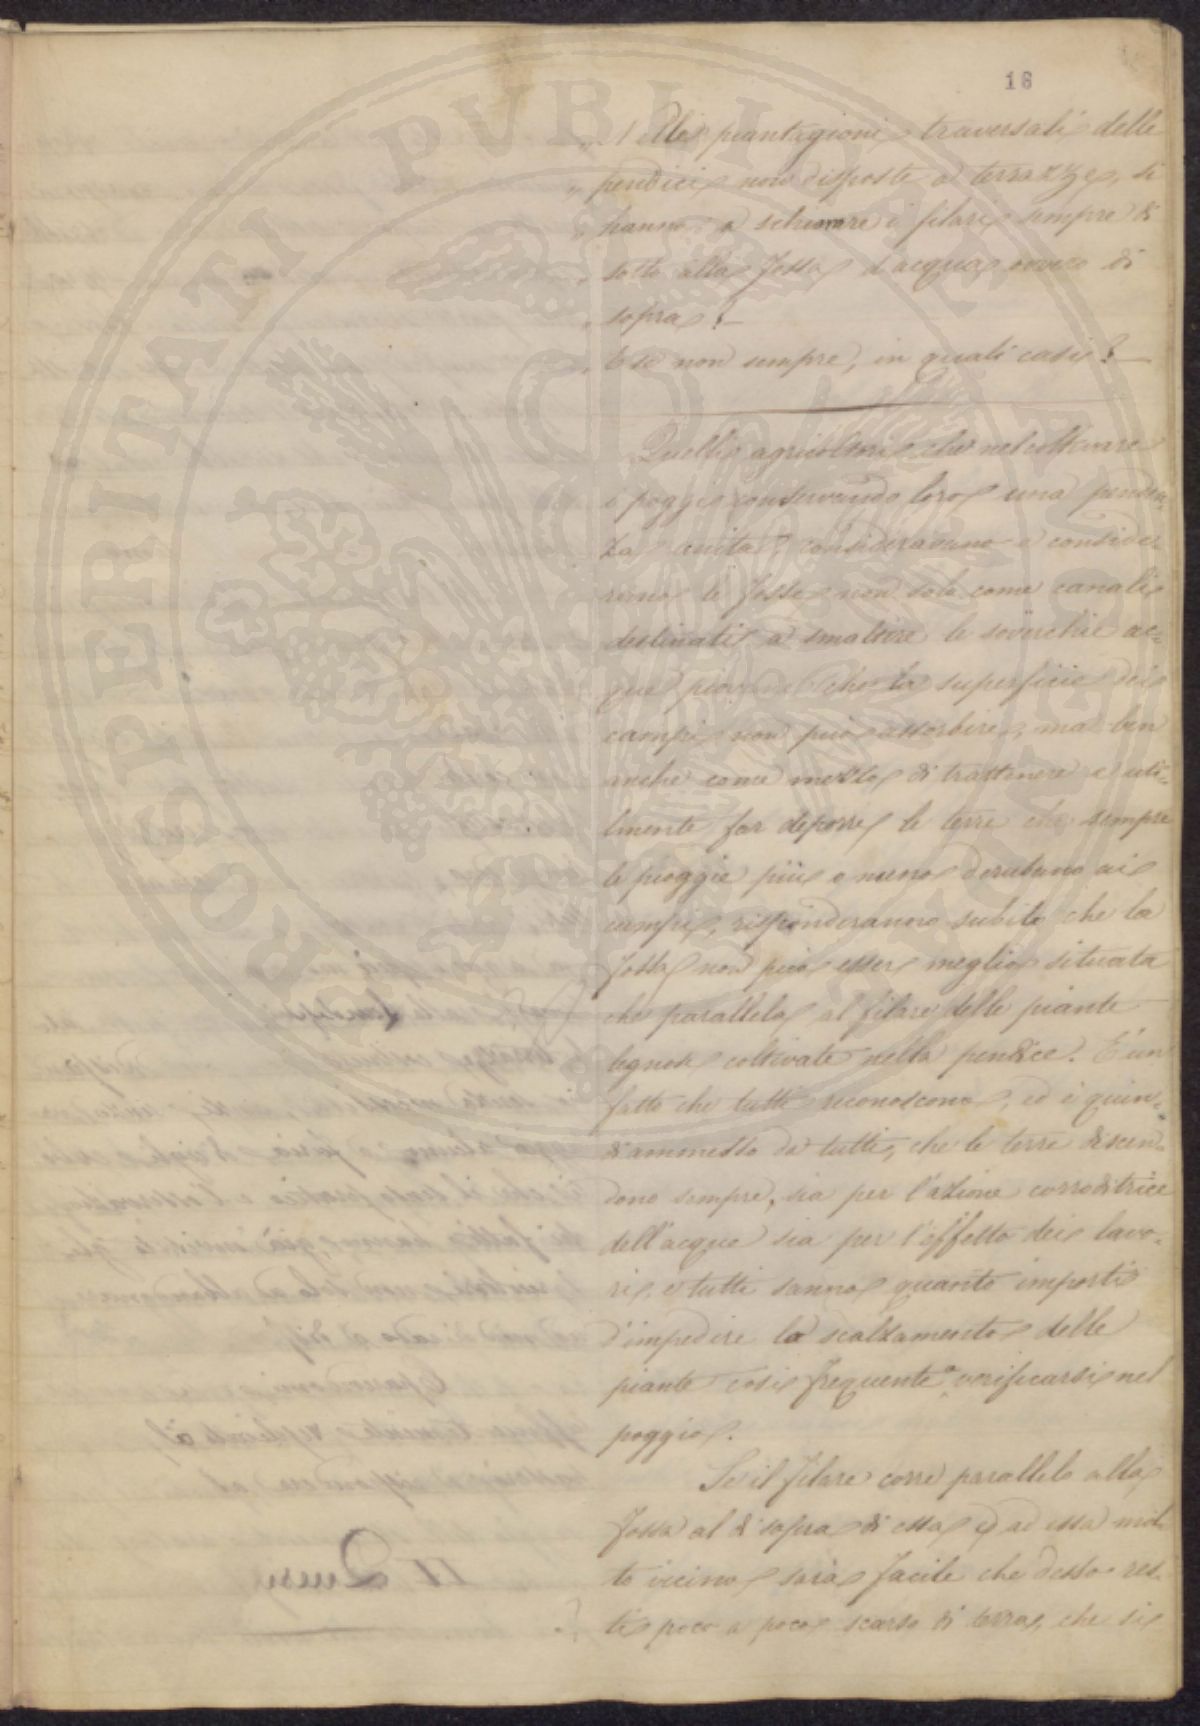 18
„ Nelle piantagioni traversali delle
„ pendici non disposte a terrazze, si
„ hanno a schierare i filari sempre di
„ sotto alla fossa d'acqua ovvero di
„ sopra? —
„ E se non sempre, in quali casi? —
Quelli agricoltori che nel coltivare
i poggi conservando loro una penden-
za unita, consideravano e conside-
rano le fosse non solo come canali
destinati a smaltire le soverchie ac-
que piovane che la superficie dei
campi non può assorbire, ma ben
anche come mezzo di trattenere e uti-
lmente far deporre le terre che sempre
le pioggie più o meno derubano ai
campi, risponderanno subito che la
fossa non può esser meglio situata
che parallela al filare delle piante
legnose coltivate nella pendice. È un
fatto che tutti riconoscono, ed è quin-
di ammesso da tutti, che le terre discen-
dono sempre, sia per l'azione corroditrice
dell'acqua sia per l'effetto dei lavo-
ri, e tutti sanno quanto importi
d'impedire lo scalzamento delle
piante così frequente a verificarsi nel
poggio.
Se il filare corre parallelo alla
fossa al di sopra di essa e ad essa mol-
to vicino, sarà facile che desso res-
ti poco a poco scarso di terra, che si
PROSPERITATI PUBLICAE AUGENDAE